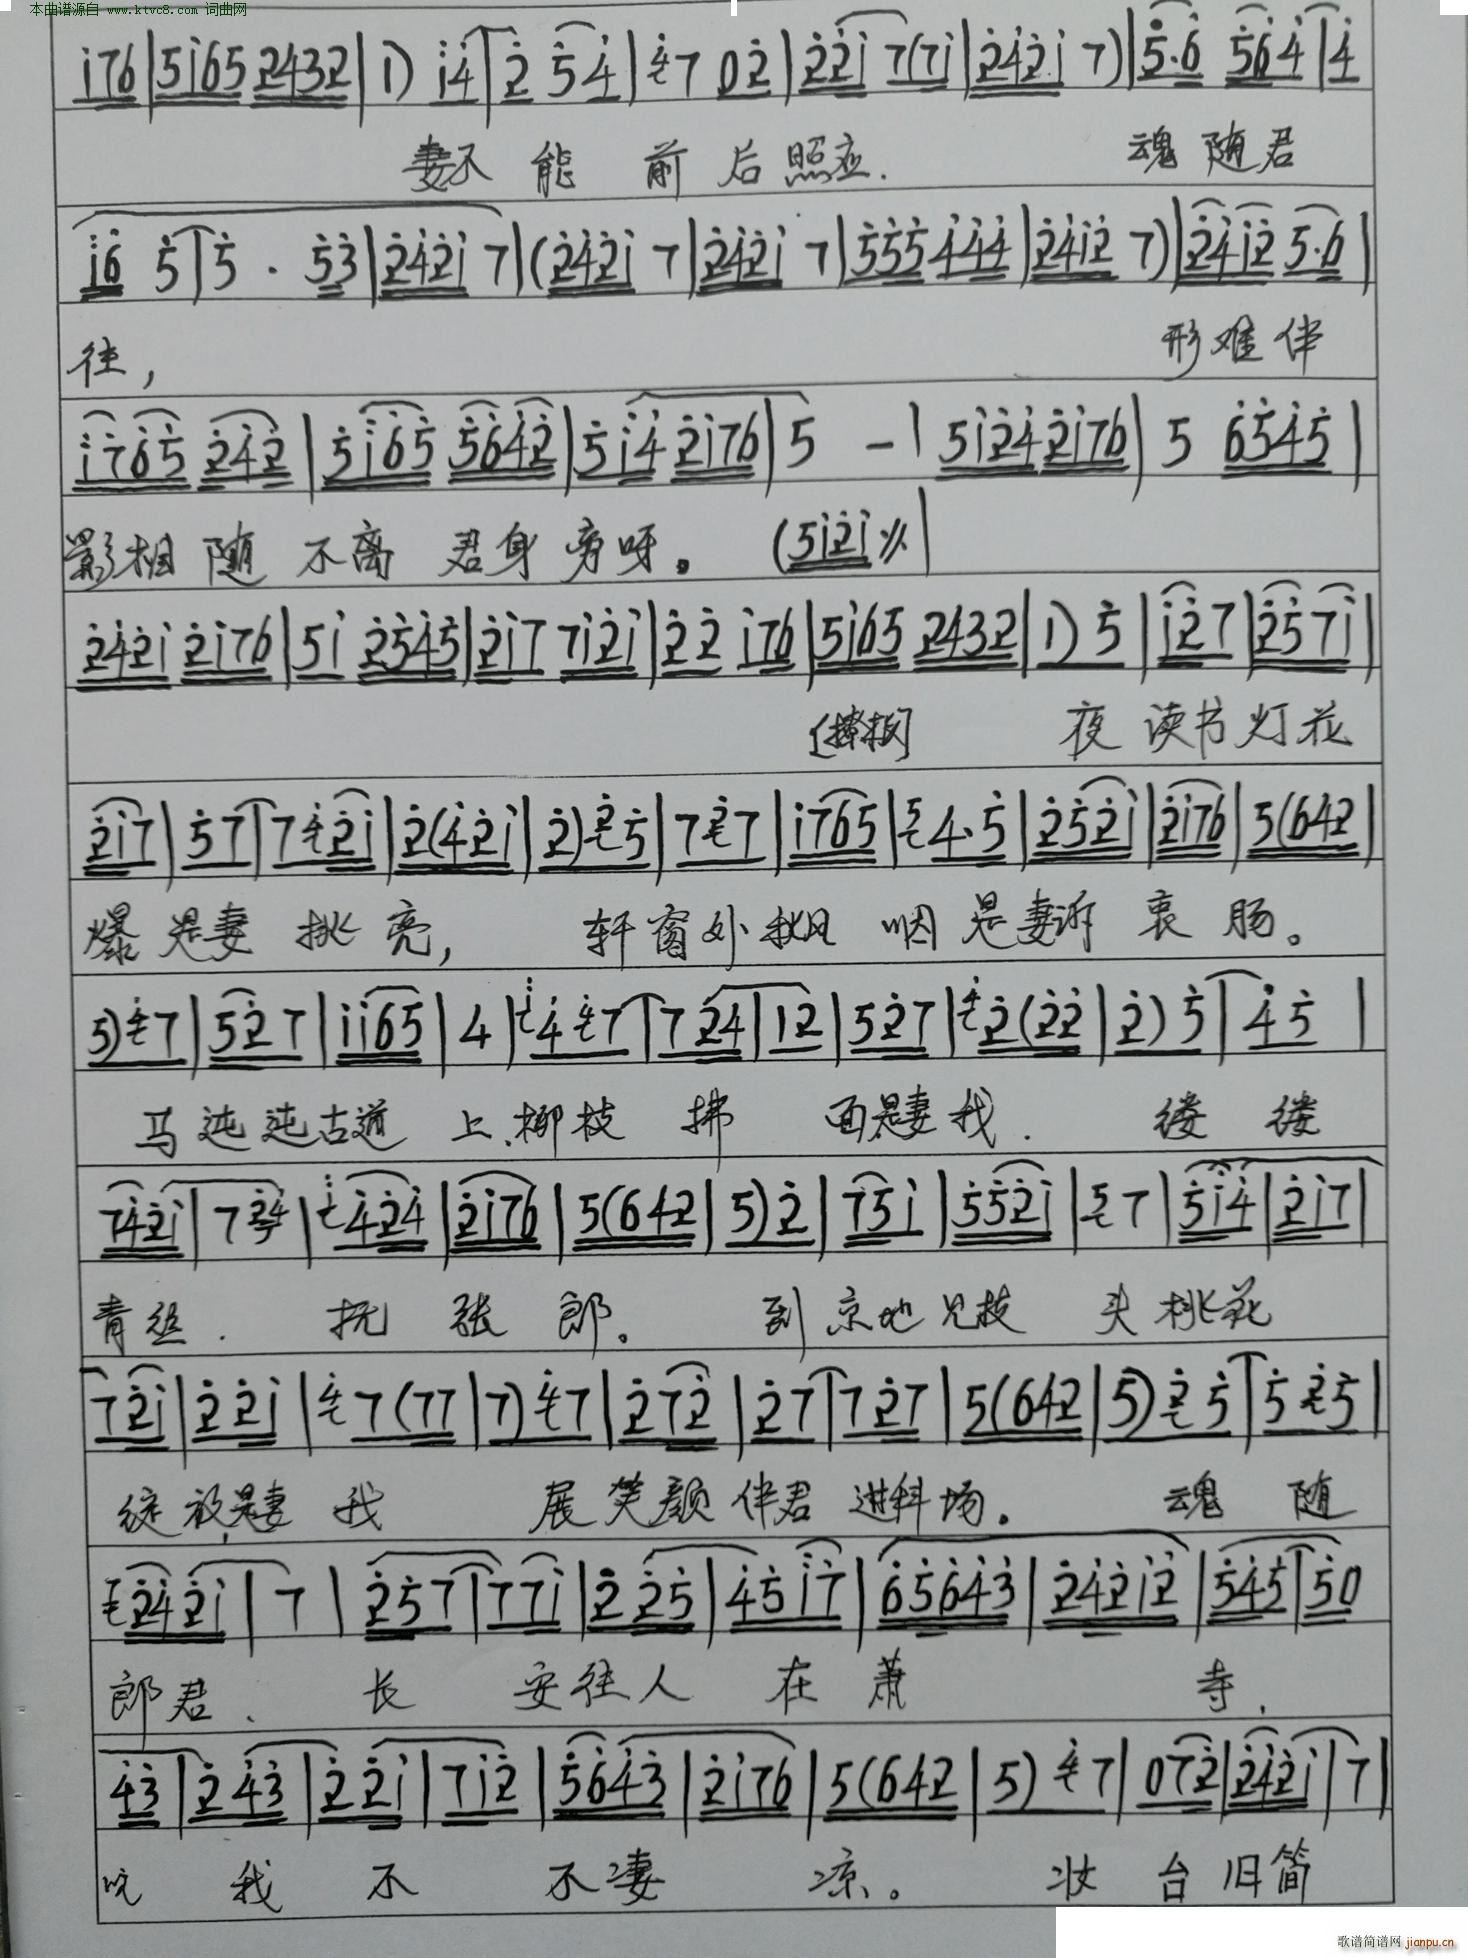 本曲谱源自 www.ktvc8.com 词曲网
i76|5i65 2432|1) i4|2 54|47 02|22i 7(7i|242i 7)|5·6 564|4
妻不能前后照应. 魂随君
i6 5|5· 53|242i 7|(242i 7|242i 7|555444|24i2 7)|24i2 5·6|
往, 形难伴
i765 242|5i65 5642|5i4 2i76|5 -|5i24 2i76|5 6545|
影相随不离君身旁呀。(5i2i〃|
242i 2i76|5i 2545|2i7 7i2i|22 i76|5i65 2432|1) 5|i27|257i|
夜读书灯花
2i7|57|742i|2(42i|2)25|727|i765|54·5|252i|2i76|5(642|
爆是妻挑亮, 轩窗外秋风咽是妻诉衷肠。
5)47|527|ii65|4|i447|724|12|527|42(22|2)5|45|
马沌沌古道上.柳枝拂面是妻我. 缕缕
742i|724|i424|2i76|5(642|5)2|75i|552i|57|5i4|2i7|
青丝. 抚张郎。到京地见枝头桃花
72i|22i|47(77|7)47|272|27|727|5(642|5)25|525|
绽放,是妻我展笑颜伴君进科场。魂随
7242i|7|257|77i|225|45i7|65643|242i2|545|50
郎君. 长安往人在萧寺,
43|243|22i|7i2|5643|2i76|5(642|5)47|072|242i|7|
吭我不不凄凉。妆台旧简
歌谱简谱网 jianpu.cn